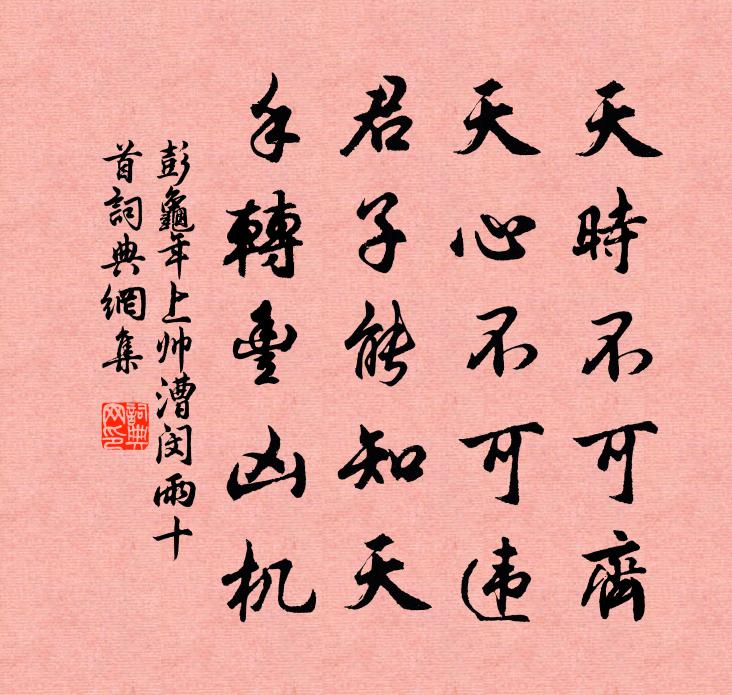 天時不可齊
天心不可违
君子能知天
手轉豐凶机
彭龜年上帅漕闵雨十
首詞典網集
詞典网印